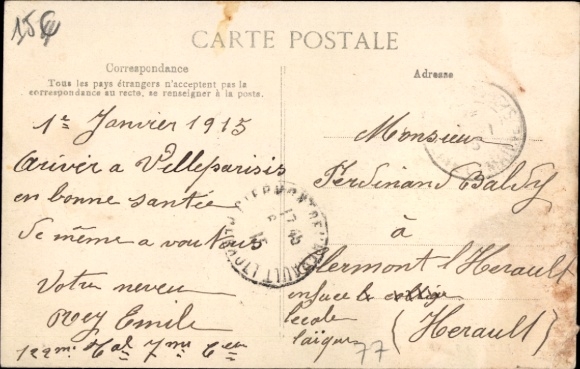 15€
CARTE POSTALE
Correspondance
Tous les pays étrangers n'acceptent pas la
correspondance au recto, se renseigner à la poste.
Adresse
1er Janvier 1915
Ariver a Villeparisis
en bonne santée
de même a vous tous
Votre neveu
Rey Emile
122me tal 7me Cie
Monsieur
Ferdinand Baldy
à
Clermont l'Herault
enface le collège
lecole
laïque
(Herault)
77
CLERMONT DE L'HERAULT
17 45
15